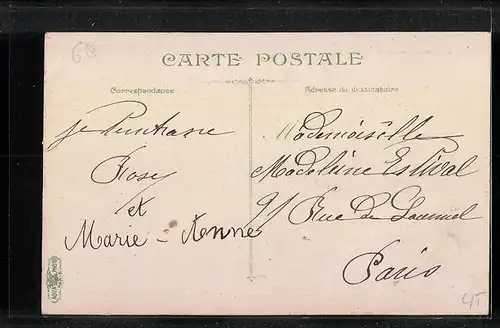 60
CARTE POSTALE
Correspondance
Adresse du destinataire
Rosy
et
Marie-Anne
Mademoiselle
Madeleine Estival
91 Rue de Lourmel
Paris